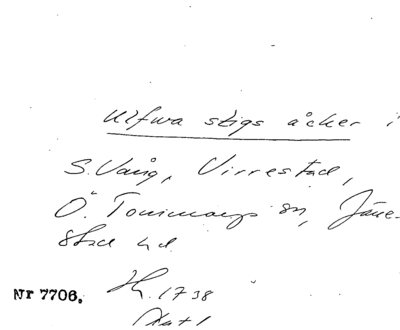 Ulfwa stigs åcker i
S. Vång, Virrestad,
Ö. Tommarps sn, Järre-
stad hd
Nr 7706. Hh. 1738